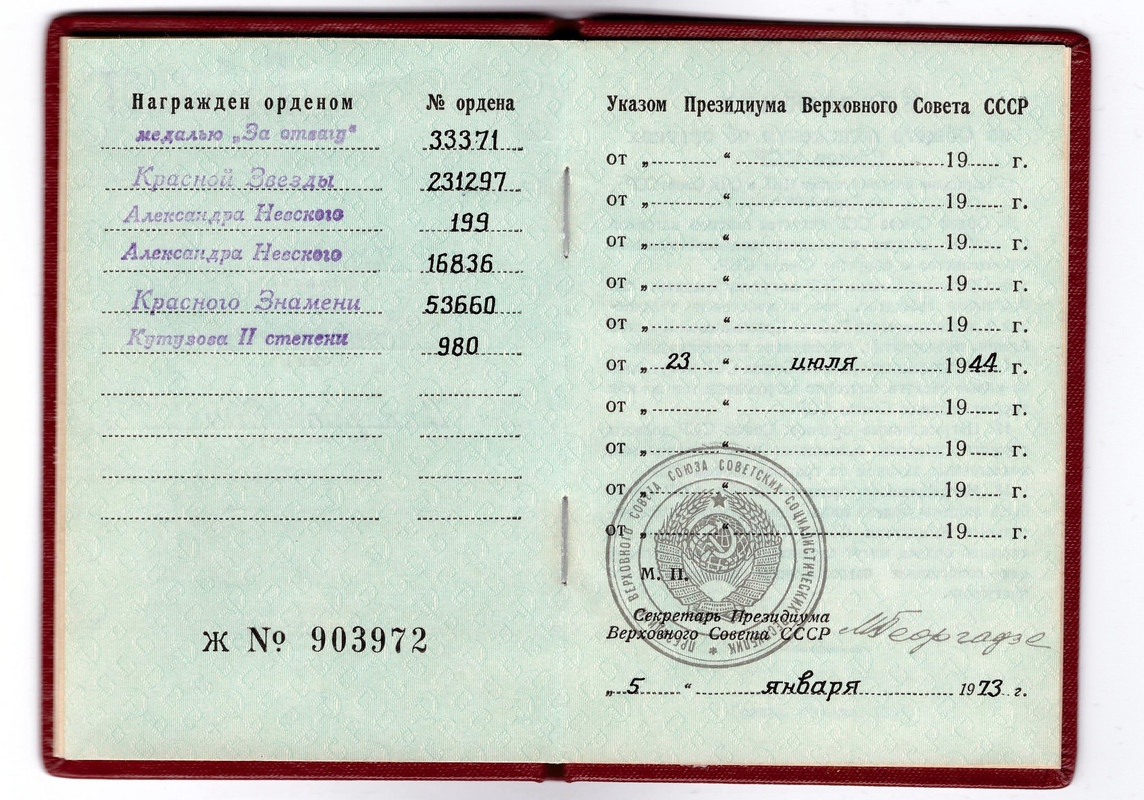 Награжден орденом № ордена
медалью „За отвагу" 33371
Красной Звезды 231297
Александра Невского 199
Александра Невского 16836
Красного Знамени 53660
Кутузова II степени 980
Ж № 903972
Указом Президиума Верховного Совета СССР
от „ “ 19 г.
от „ “ 19 г.
от „ “ 19 г.
от „ “ 19 г.
от „ “ 19 г.
от „ 23 “ июля 1944 г.
от „ “ 19 г.
от „ “ 19 г.
от „ “ 19 г.
от „ “ 19 г.
ПРЕЗИДИУМ ВЕРХОВНОГО СОВЕТА СОЮЗА СОВЕТСКИХ СОЦИАЛИСТИЧЕСКИХ РЕСПУБЛИК *
М. П.
Секретарь Президиума
Верховного Совета СССР МГеоргадзе
„ 5 “ января 1973 г.